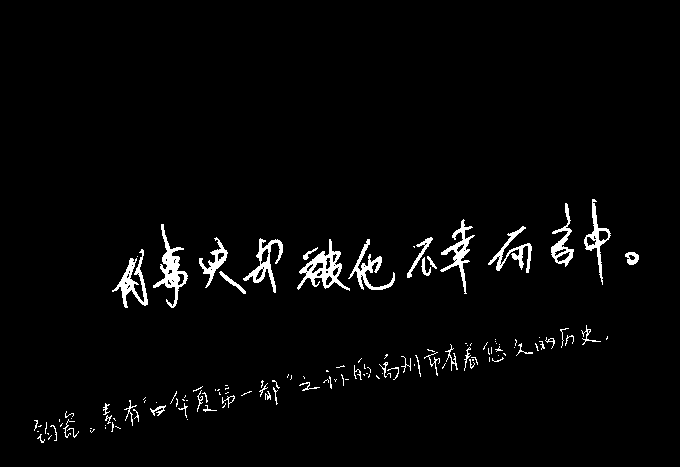 的事实却被他不幸而言中。
钧瓷。素有“中华夏第一都”之称的禹州市有着悠久的历史,